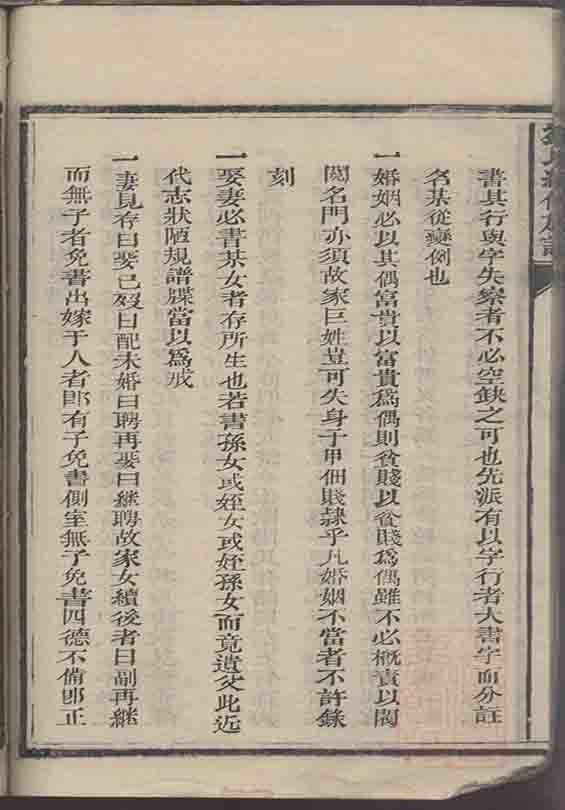 書其行與字失察者不必空缺之可也先派有以字行者大書字而分註
名某從變例也
一婚姻必以其偶富貴以富貴爲偶則貧賤以貧賤爲偶雖不必概責以閥
閱名門亦須故家巨姓豈可失身于甲佃賤隸乎凡婚姻不當者不許錄
刻
一娶妻必書某女者存所生也若書孫女或姪女或姪孫女而竟遺父此近
代志狀陋規譜牒當以爲戒
一妻見存曰娶已歿曰配未婚曰聘再娶曰繼聘故家女續後者曰副再繼
而無子者免書出嫁于人者卽有子免書側室無子免書四德不備卽正